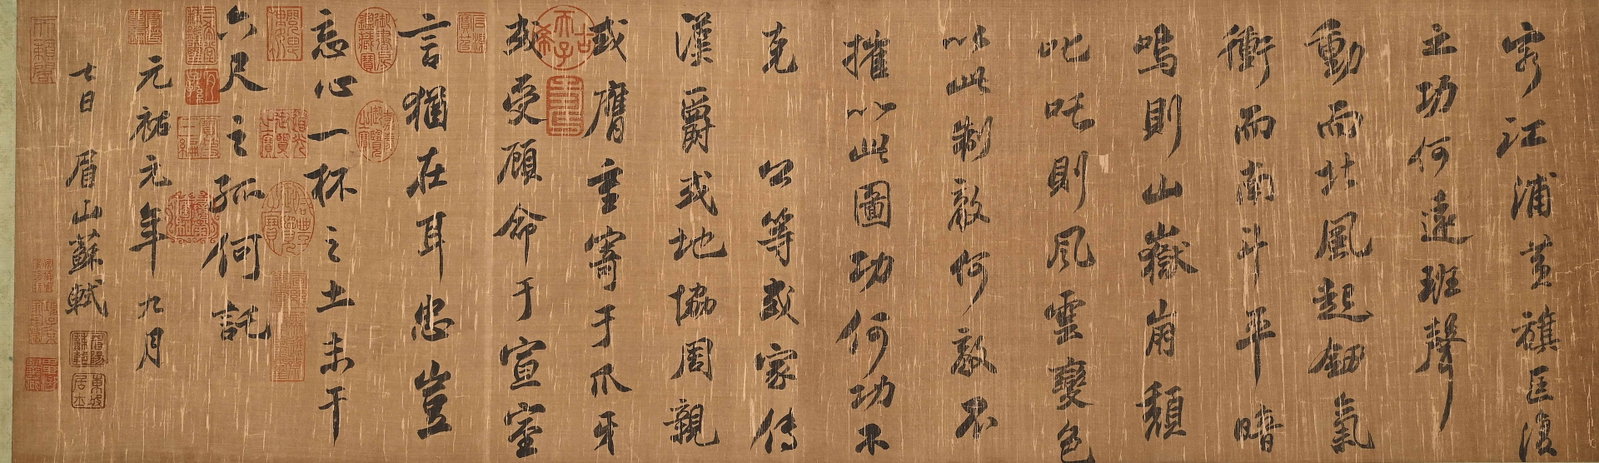 穷江浦黄旗匡復
之功何遠班聲
動而北風起劒氣
衝而南斗平喑
嗚則山嶽崩頹
叱吒則風靈變色
以此制敵何敵不
摧以此圖功何功不
克 公等或家傳
漢爵或地協周親
或膺重寄于爪牙
或受顧命于宣室
言猶在耳忠豈
忘心一杯之土未干
六尺之孤何託
元祐元年九月
七日 眉山蘇軾
古希天子
東坡居士